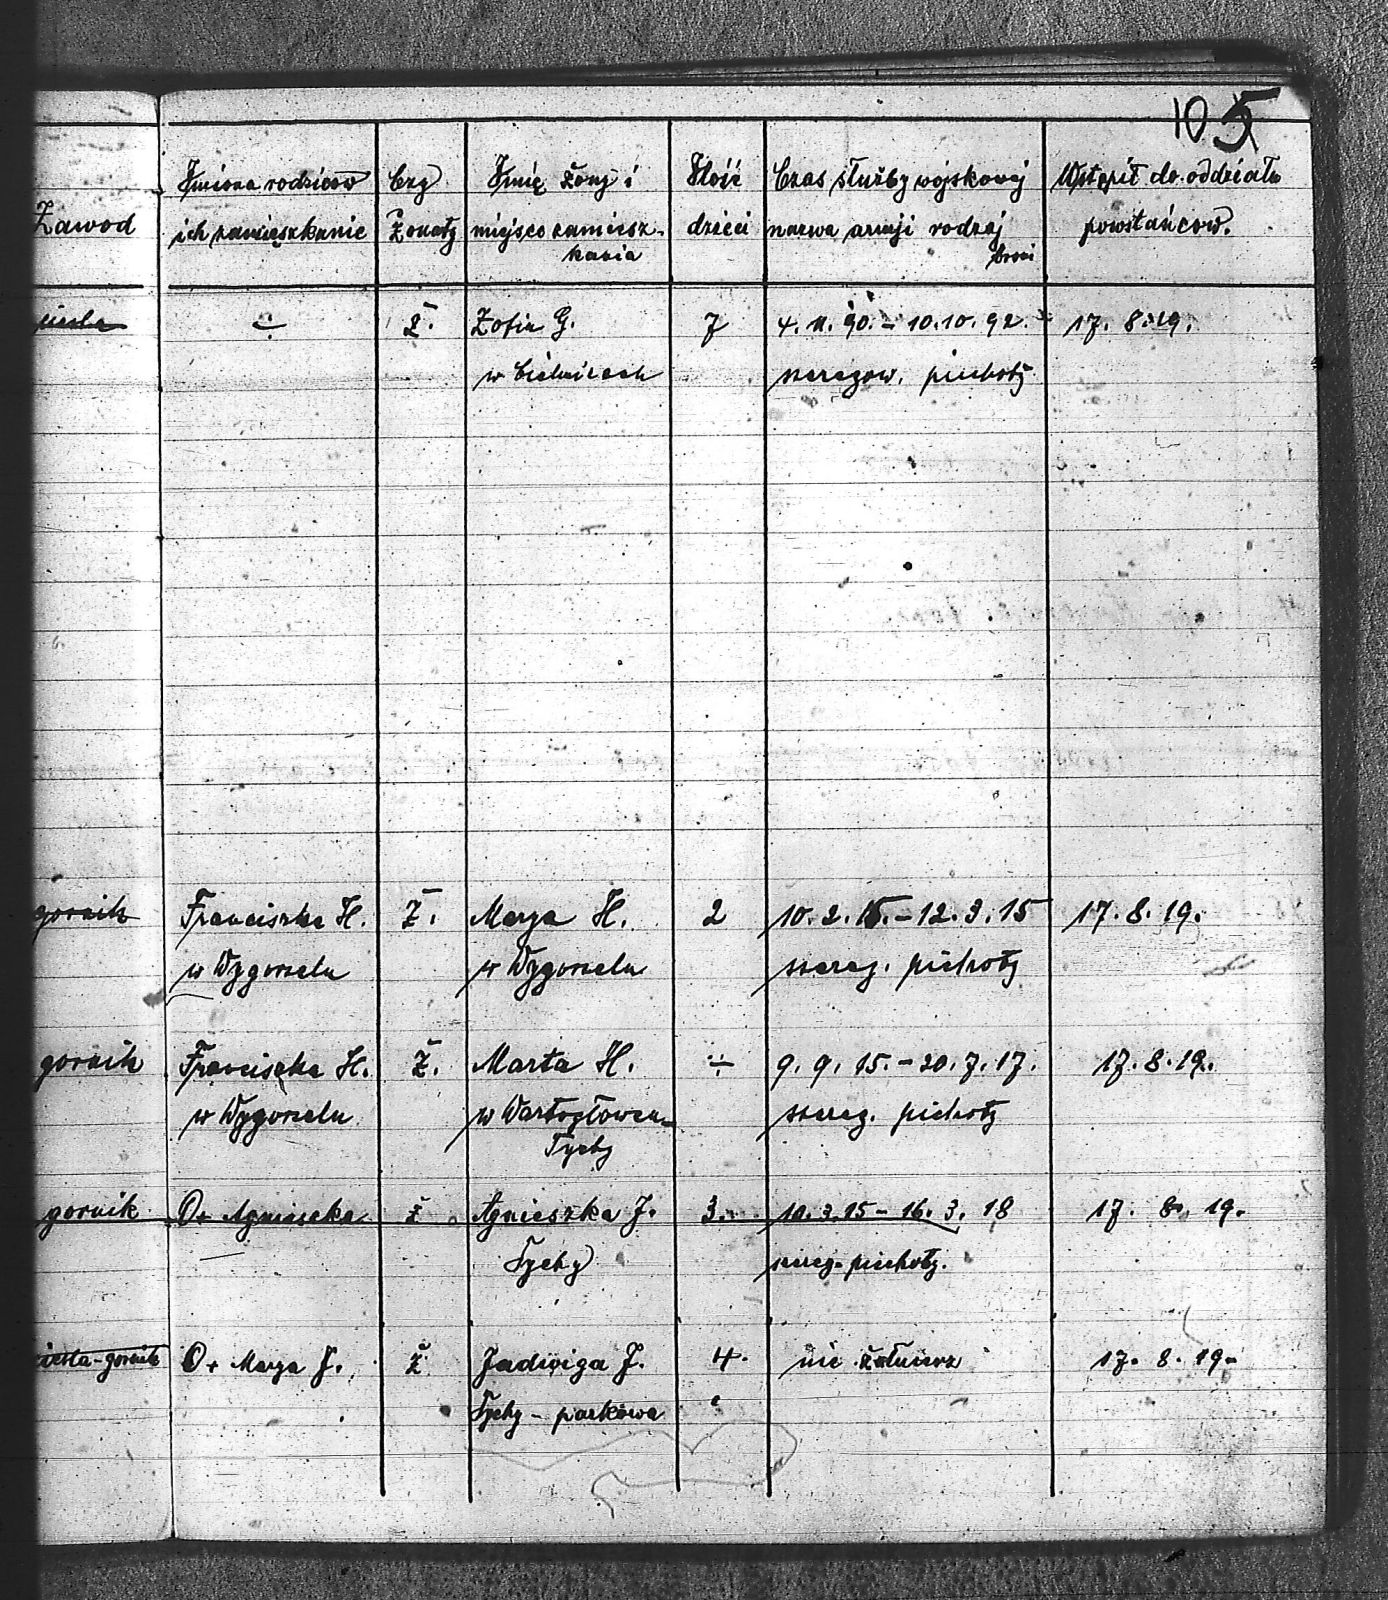 105
Zawod
Imiona rodziców
ich zamieszkanie
Czy
Żonaty
Imię żony i
miejsce zamiesz-
kania
Ilość
dzieci
Czas służby wojskowej
nazwa armji rodzaj
broni
Wstąpił do oddziału
powstańców.
÷ Ż. Zofia G. 7 4. 11. 90. - 10. 10. 92. 17. 8. 19.
w Cielmicach szeregow. piechoty
gornik Franciszka H. Ż. Marya H. 2 10. 2. 15. - 12. 3. 15 17. 8. 19.
w Wygorzelu w Wygorzelu szereg. piechoty
gornik Franciszka H. Ż. Marta H. ÷ 9. 9. 15. - 20. 7. 17. 17. 8. 19.
w Wygorzelu w Wartogłowcu- szereg. piechoty
Tychy
gornik O+ Agnieszka ż Agnieszka J. 3. 10. 3. 15 - 16. 3. 18 17. 8. 19.
Tychy szereg. piechoty.
ciesla-gornik O+ Marya J. ż Jadwiga J. 4. nie żołnierz 17. 8. 19.
Tychy - parkowa